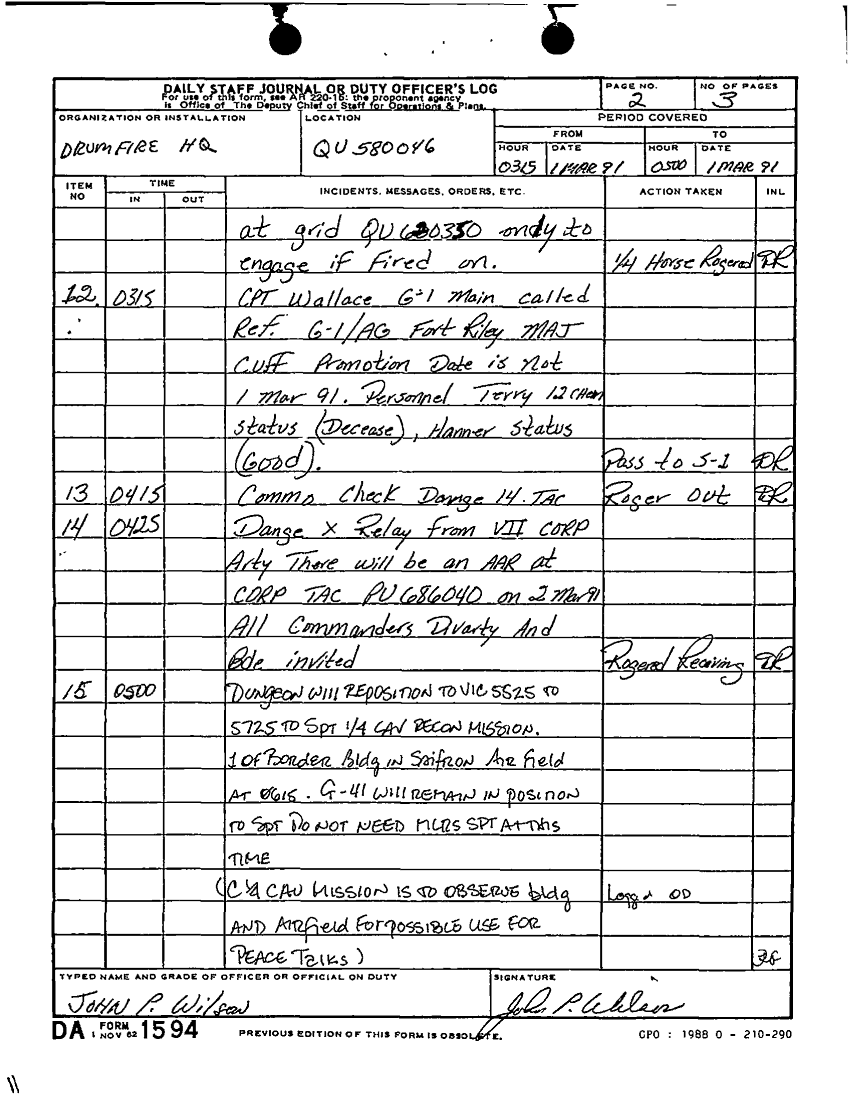 DAILY STAFF JOURNAL OR DUTY OFFICER'S LOG
For use of this form, see AR 220-15; the proponent agency
is Office of The Deputy Chief of Staff for Operations & Plans.
PAGE NO.
2
NO OF PAGES
3
ORGANIZATION OR INSTALLATION
DRUMFIRE HQ
LOCATION
QU580046
PERIOD COVERED
FROM
TO
HOUR
0315
DATE
1 MAR 91
HOUR
0500
DATE
1 MAR 91
ITEM NO
TIME
IN
OUT
INCIDENTS, MESSAGES, ORDERS, ETC.
ACTION TAKEN
INL
at grid only to
engage if fired on. 1/4 Horse Rogered
12. 0315 CPT Wallace G-1 Main called
Ref. G-1/AG Fort Riley MAJ
Cuff Promotion Date is not
1 Mar 91. Personnel Terry 12 Chem
status (Decease), Hanner status
(Good). Pass to S-1
13 0415 Commo Check Dange 14. TAC Roger out
14 0425 Dange X Relay from VII CORP
Arty There will be an AAR at
CORP TAC PU686040 on 2 Mar 91
All Commanders Divarty And
Bde invited Rogered Receiving
15 0500 DUNGEON WILL REPOSITION TO VIC 5525 TO
5725 TO SPT 1/4 CAV RECON MISSION.
1 OF BORDER Bldg IN AIR Field
AT 0615. G-41 WILL REMAIN IN POSITION
TO SPT DO NOT NEED MLRS SPT AT THIS
TIME
CAV MISSION IS TO OBSERVE bldg OD
AND AIRfield FOR POSSIBLE USE FOR
PEACE Talks)
TYPED NAME AND GRADE OF OFFICER OR OFFICIAL ON DUTY
JOHN P. Wilson
SIGNATURE
DA FORM 1 NOV 62 1594
PREVIOUS EDITION OF THIS FORM IS OBSOLETE.
GPO : 1988 O - 210-290